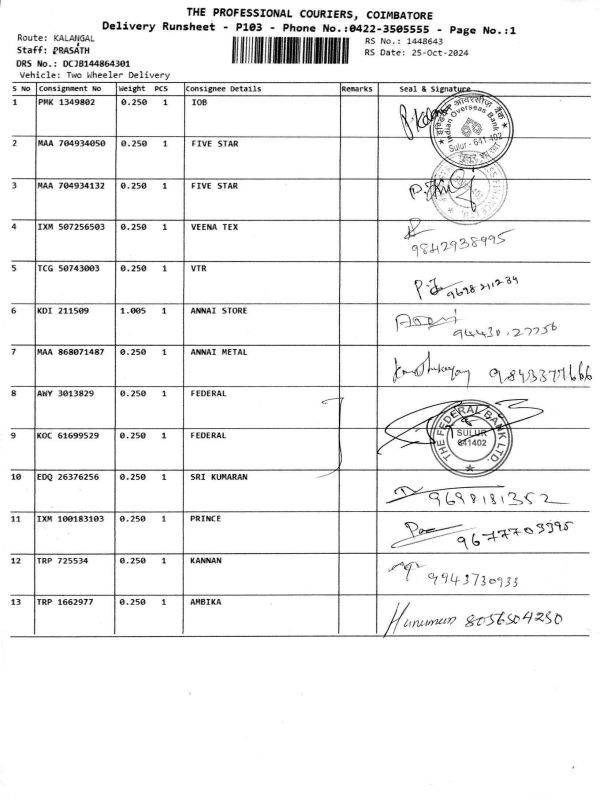 THE PROFESSIONAL COURIERS, COIMBATORE
Delivery Runsheet - P103 - Phone No.:0422-3505555 - Page No.:1
Route: KALANGAL
RS No.: 1448643
Staff: PRASATH
RS Date: 25-Oct-2024
DRS No.: DCJB144864301
Vehicle: Two Wheeler Delivery
S No Consignment No Weight PCS Consignee Details Remarks Seal & Signature
1 PMK 1349802 0.250 1 IOB
Indian Overseas Bank
Sulur - 641 402
2 MAA 704934050 0.250 1 FIVE STAR
3 MAA 704934132 0.250 1 FIVE STAR
4 IXM 507256503 0.250 1 VEENA TEX
9842938995
5 TCG 50743003 0.250 1 VTR
9698211234
6 KDI 211509 1.005 1 ANNAI STORE
94430.27756
7 MAA 868071487 0.250 1 ANNAI METAL
8 AWY 3013829 0.250 1 FEDERAL
THE FEDERAL BANK LTD.
SULUR
641402
9 KOC 61699529 0.250 1 FEDERAL
10 EDQ 26376256 0.250 1 SRI KUMARAN
9698181352
11 IXM 100183103 0.250 1 PRINCE
9677703395
12 TRP 725534 0.250 1 KANNAN
9943730933
13 TRP 1662977 0.250 1 AMBIKA
Hanuman 8056504230